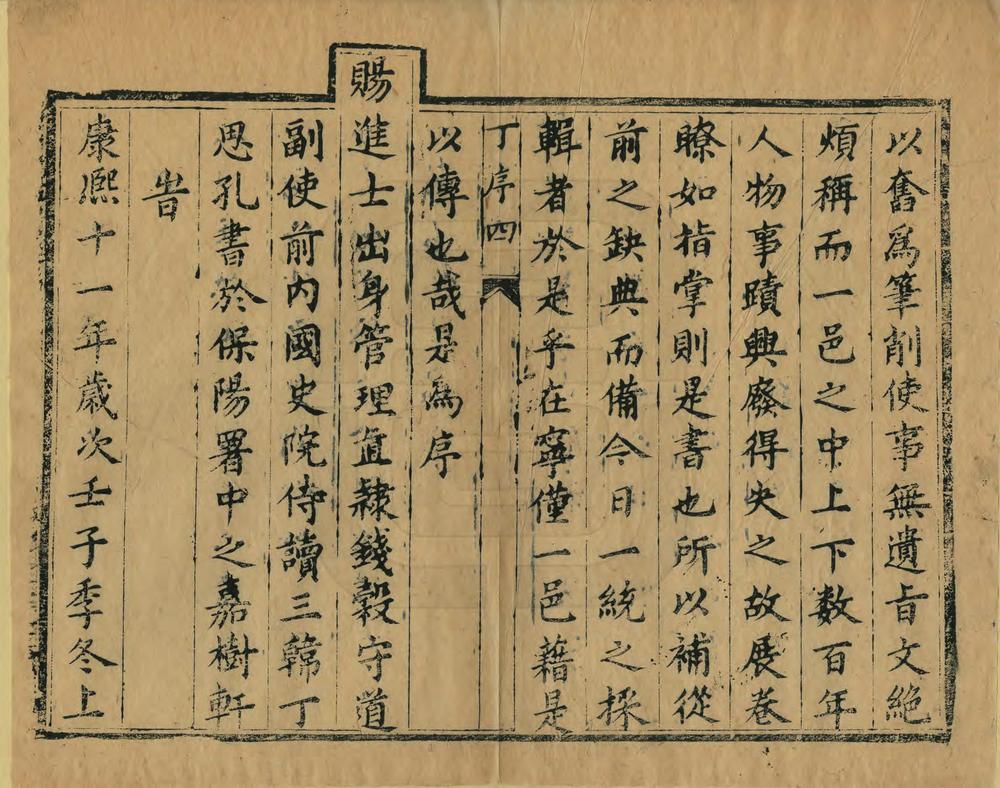 以奮爲筆削使事無遺旨文絶
煩稱而一邑之中上下数百年
人物事蹟興廢得失之故展卷
瞭如指掌則是書也所以補從
前之缺典而備今日一統之採
輯者於是乎在寧僅一邑藉是
丁序四
以傳也哉是為序
賜進士出身管理直隷錢穀守道
副使前内國史院侍讀三韓丁
思孔書於保陽署中之嘉樹軒
旹
康熈十一年歲次壬子季冬上